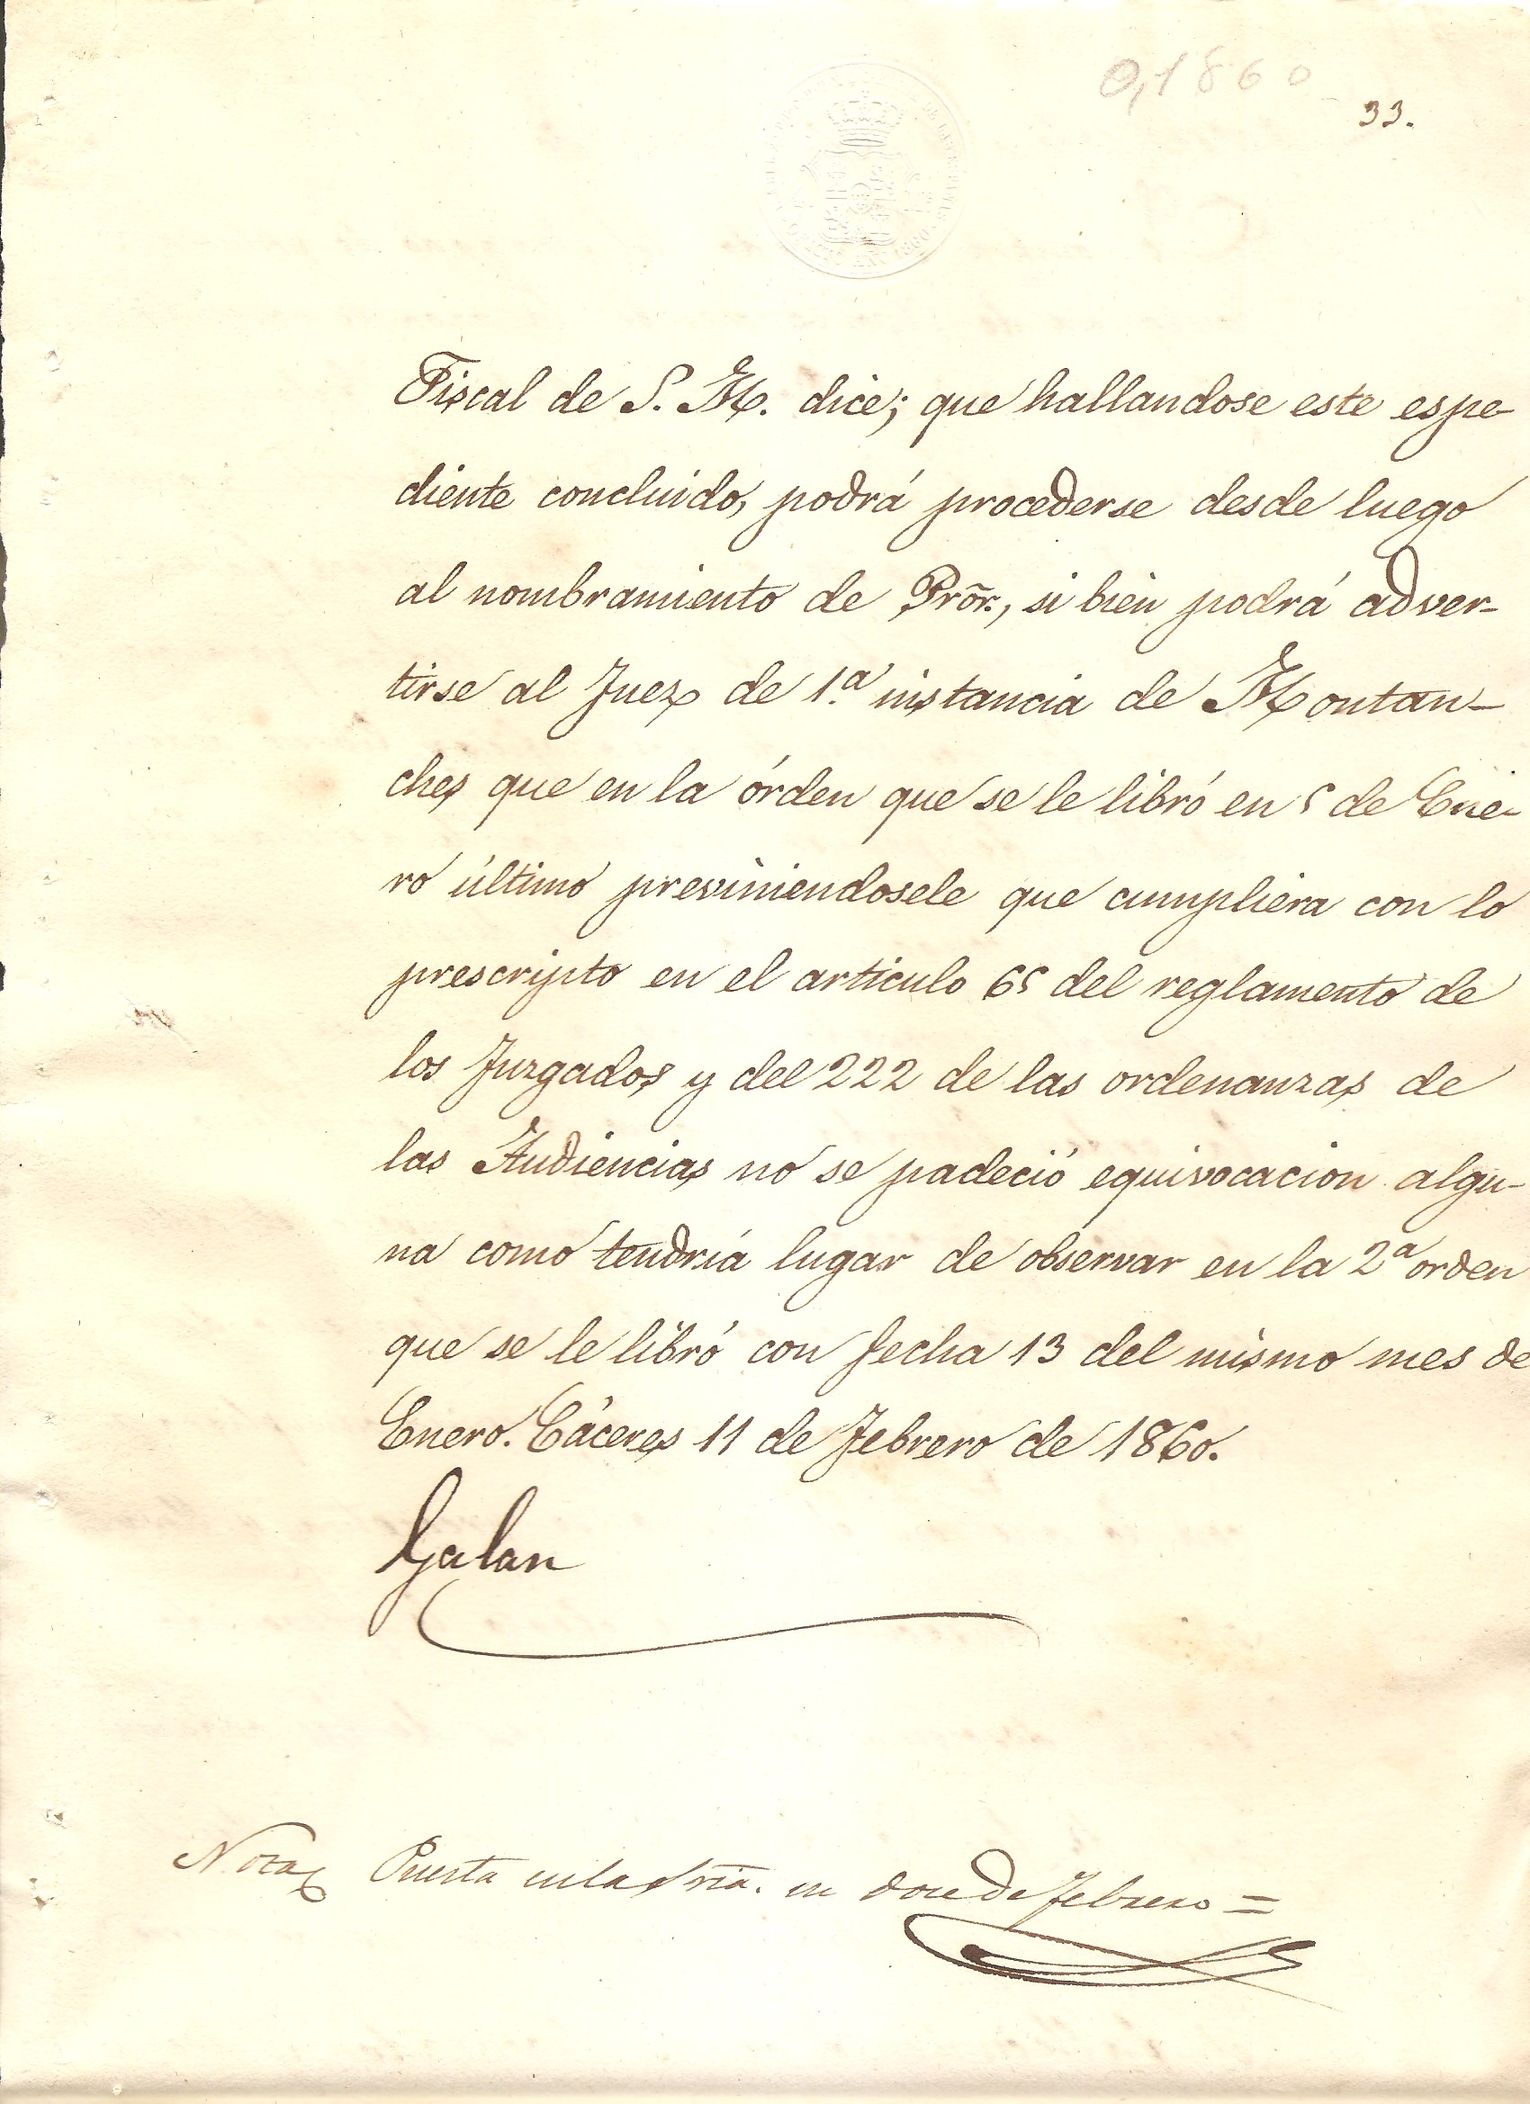 0,1860
33.
Fiscal de S. M. dice; que hallandose este espe-
diente concluido, podrá procederse desde luego
al nombramiento de Prõr., si bien podrá adver-
tirse al Juez de 1.ª instancia de Montan-
ches que en la órden que se le libró en 5 de Ene-
ro último previniendosele que cumpliera con lo
prescripto en el articulo 65 del reglamento de
los Juzgados y del 222 de las ordenanzas de
las Audiencias no se padeció equivocacion algu-
na como tendria lugar de observar en la 2ª orden
que se le libró con fecha 13 del mismo mes de
Enero. Cáceres 11 de Febrero de 1860.
Galan
Nota Puesta en la Sria. en doce de Febrero =